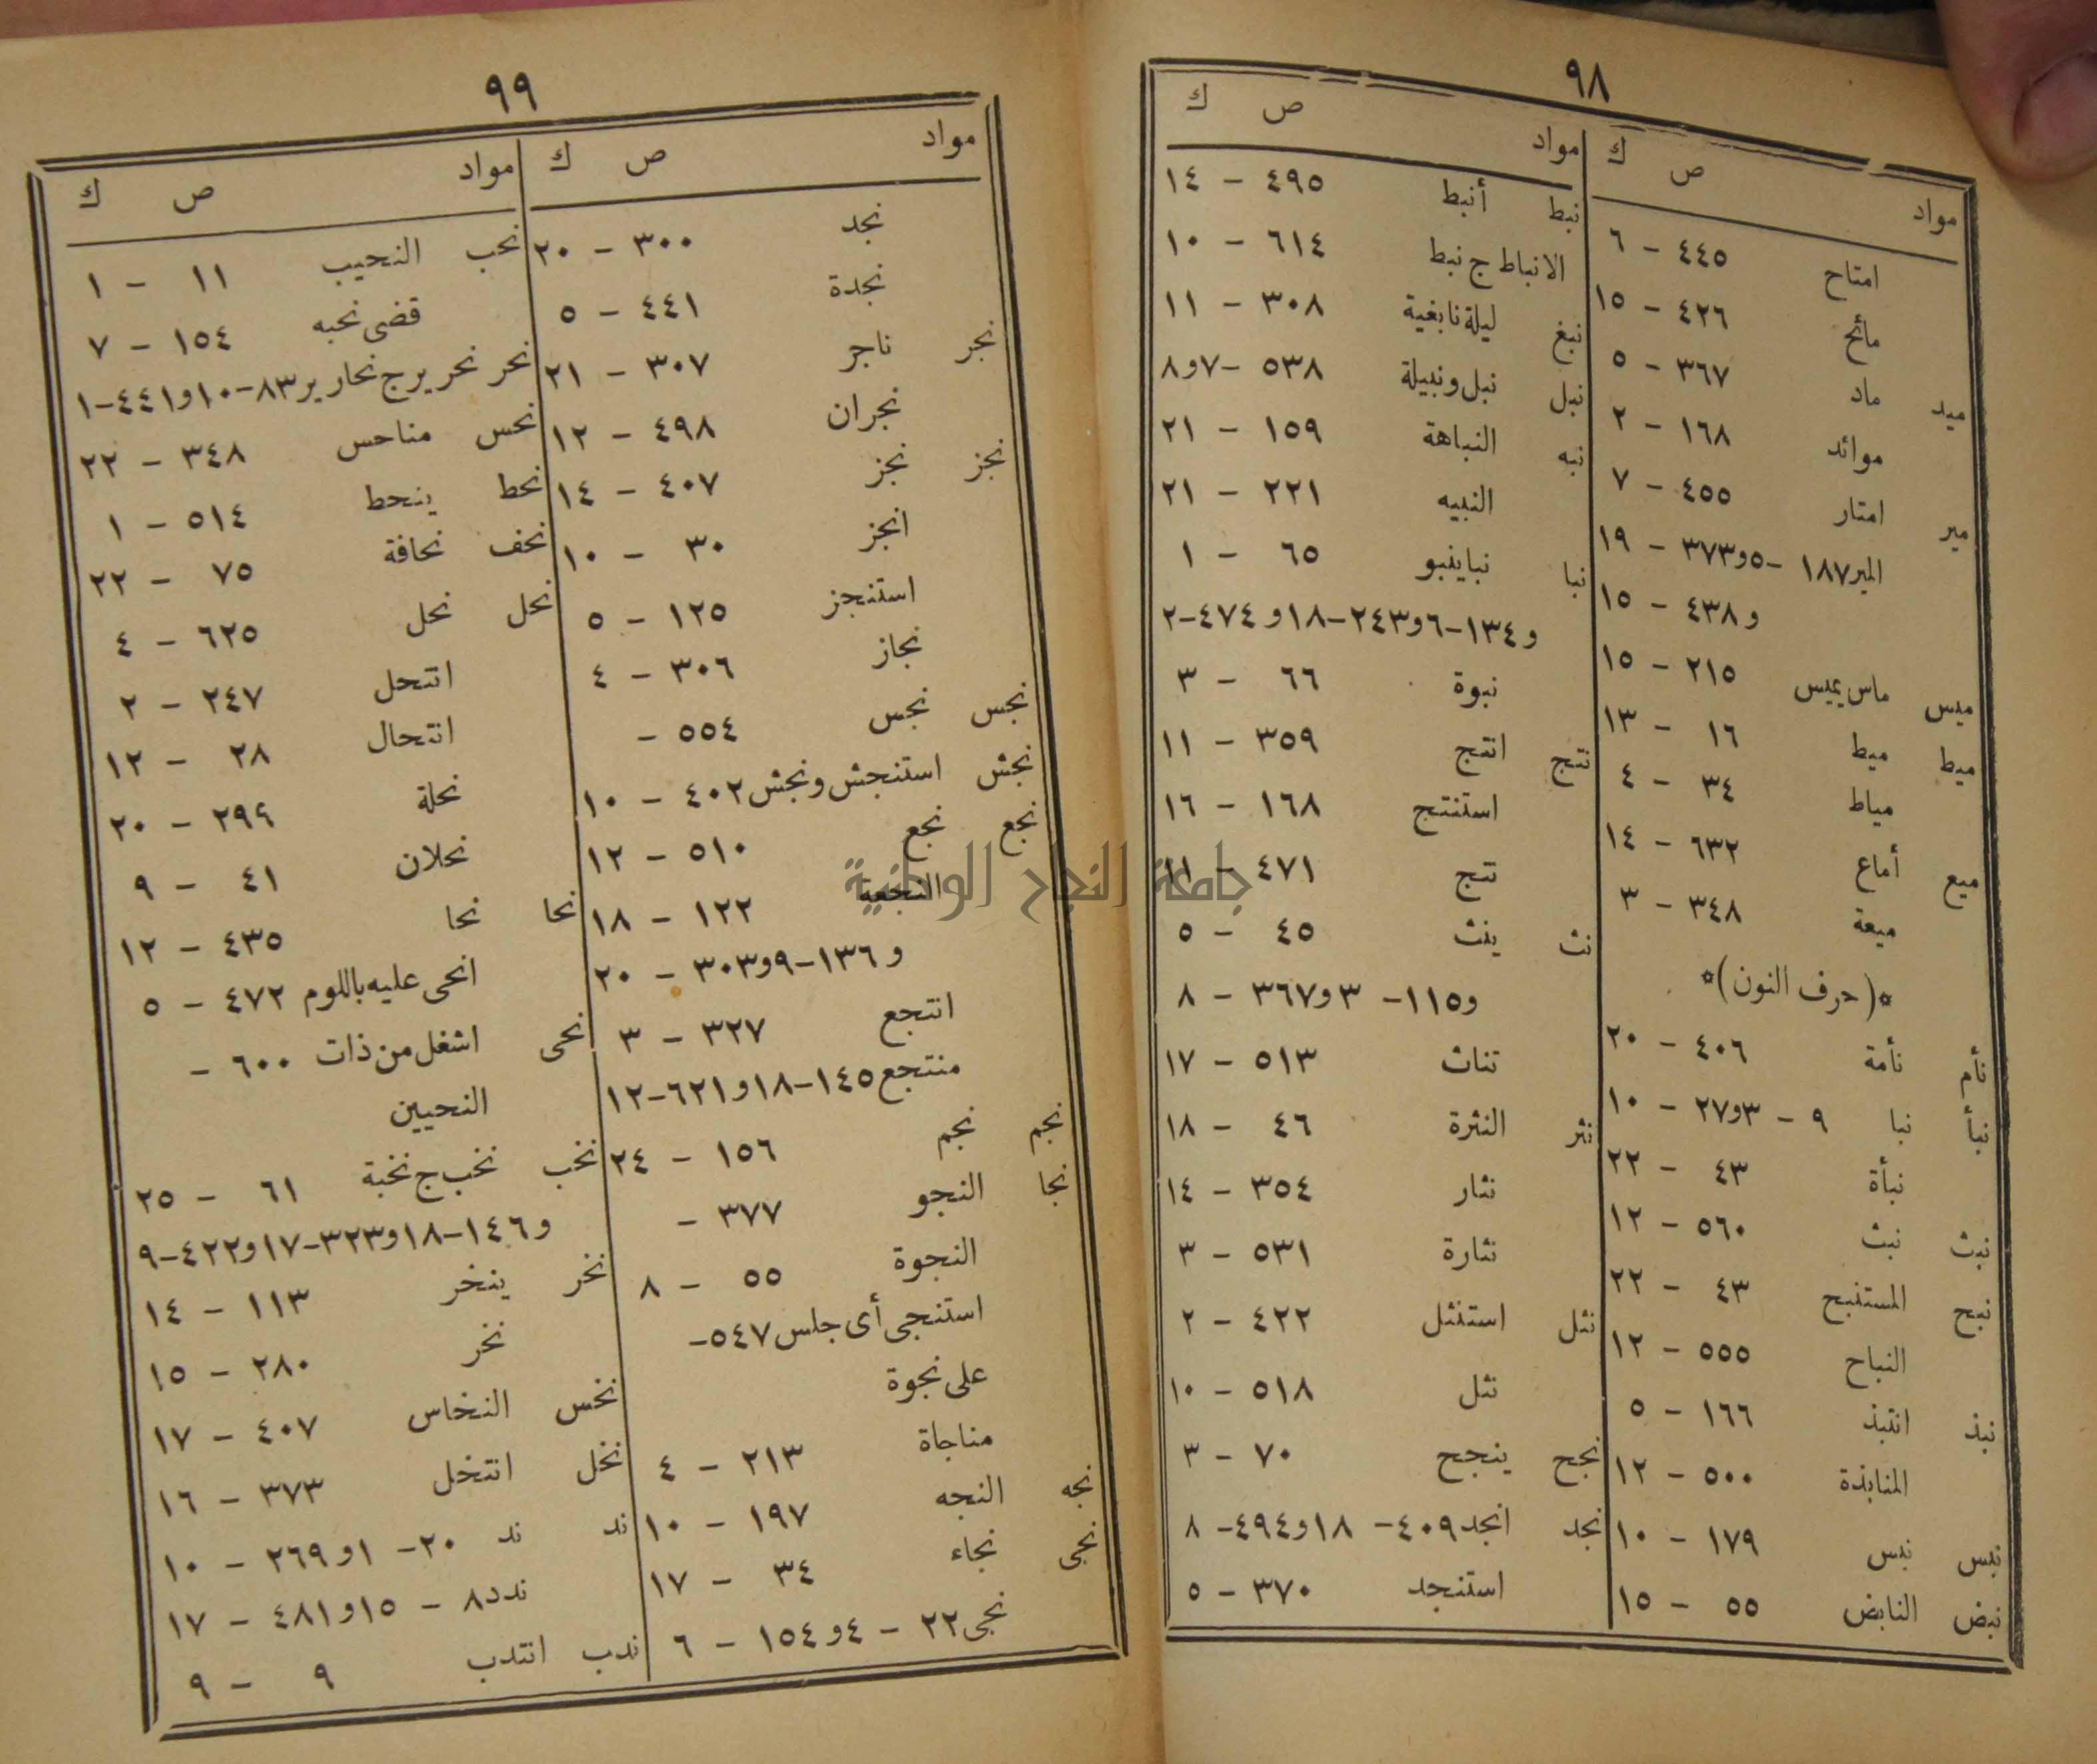 ٩٨
مواد ص ك
امتاح ٤٤٥ - ٦
مائح ٤٢٦ - ١٥
ميد ماد ٣٦٧ - ٥
موائد ١٦٨ - ٢
مير امتار ٤٥٥ - ٧
المير ١٨٧ -٥و٣٧٣ - ١٩
و ٤٣٨ - ١٥
ميس ماس يميس ٢١٥ - ١٥
ميط ميط ١٦ - ١٣
مياط ٣٤ - ٤
ميع أماع ٦٣٢ - ١٤
ميعة ٣٤٨ - ٣
*(حرف النون)*
نأم نأمة ٤٠٦ - ٢٠
نبأ نبا ٩ - ٣و٢٧ - ١٠
نبأة ٤٣ - ٢٢
نبث نبث ٥٦٠ - ١٢
نبح المستنبح ٤٣ - ٢٢
النباح ٥٥٥ - ١٢
نبذ انتبذ ١٦٦ - ٥
المنابذة ٥٠٠ - ١٢
نبس نبس ١٧٩ - ١٠
نبض النابض ٥٥ - ١٥
مواد ص ك
نبط أنبط ٤٩٥ - ١٤
الانباط ج نبط ٦١٤ - ١٠
نبغ ليلة نابغية ٣٠٨ - ١١
نبل نبل ونبيلة ٥٣٨ -٧و٨
نبه النباهة ١٥٩ - ٢١
النبيه ٢٢١ - ٢١
نبا نبا ينبو ٦٥ - ١
و ١٣٤-٦و٢٤٣-١٨و٤٧٤-٢
نبوة ٦٦ - ٣
نتج انتج ٣٥٩ - ١١
استنتج ١٦٨ - ١٦
نتج ٤٧١ - ١١
نث ينث ٤٥ - ٥
و١١٥- ٣و٣٦٧ - ٨
تناث ٥١٣ - ١٧
نثر النثرة ٤٦ - ١٨
نثار ٣٥٤ - ١٤
نثارة ٥٣١ - ٣
نثل استنثل ٤٢٢ - ٢
نثل ٥١٨ - ١٠
نجح ينجح ٧٠ - ٣
نجد انجد ٤٠٩- ١٨و٤٩٤- ٨
استنجد ٣٧٠ - ٥
٩٩
مواد ص ك
نجد ٣٠٠ - ٢٠
نجدة ٤٤١ - ٥
نجر ناجر ٣٠٧ - ٢١
نجران ٤٩٨ - ١٢
نجز نجز ٤٠٧ - ١٤
انجز ٣٠ - ١٠
استنجز ١٢٥ - ٥
نجاز ٣٠٦ - ٤
نجس نجس ٥٥٤ -
نجش استنجش ونجش ٤٠٢ - ١٠
نجع نجع ٥١٠ - ١٢
النجعة ١٢٢ - ١٨
و ١٣٦-٩و٣٠٣ - ٢٠
انتجع ٣٢٧ - ٣
منتجع ١٤٥-١٨و٦٢١-١٢
نجم نجم ١٥٦ - ٢٤
نجا النجو ٣٧٧ -
النجوة ٥٥ - ٨
استنجى أى جلس ٥٤٧-
على نجوة
مناجاة ٢١٣ - ٤
نجه النجه ١٩٧ - ١٠
نجى نجاء ٣٤ - ١٧
نجى ٢٢ - ٤و١٥٤ - ٦
مواد ص ك
نحب النحيب ١١ - ١
قضى نحبه ١٥٤ - ٧
نحر نحرير ج نحارير ٨٣-١٠و٤٤١-١
نحس مناحس ٣٤٨ - ٢٢
نحط ينحط ٥١٤ - ١
نحف نحافة ٧٥ - ٢٢
نحل نحل ٦٢٥ - ٤
انتحل ٢٤٧ - ٢
انتحال ٢٨ - ١٢
نحلة ٢٩٩ - ٢٠
نحلان ٤١ - ٩
نحا نحا ٤٣٥ - ١٢
انحى عليه باللوم ٤٧٢ - ٥
نحى اشغل من ذات ٦٠٠ -
النحيين
نخب نخب ج نخبة ٦١ - ٢٥
و ١٤٦-١٨و٣٢٣-١٧و٤٢٢-٩
نخر ينخر ١١٣ - ١٤
نخر ٢٨٠ - ١٥
نخس النخاس ٤٠٧ - ١٧
نخل انتخل ٣٧٣ - ١٦
ند ند ٢٠- ١و٢٦٩ - ١٠
ندد ٨ - ١٥و٤٨١ - ١٧
ندب انتدب ٩ - ٩
جامعة النجاح الوطنية